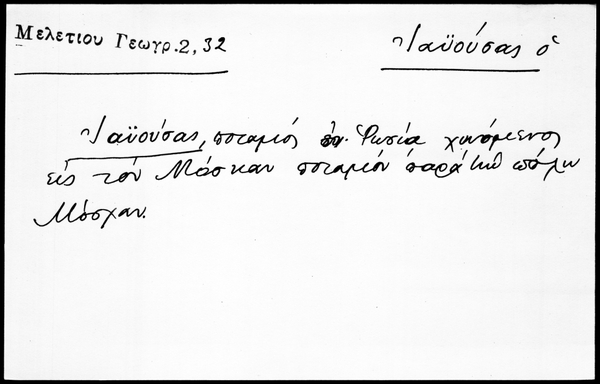 Μελετίου Γεωγρ. 2, 32
Ἰαϋούσας ὁ
Ἰαϋούσας, ποταμὸς ἐν Ῥωσίᾳ χυνόμενος
εἰς τὸν Μόσκαν ποταμὸν παρὰ τὴν πόλιν
Μόσχαν.